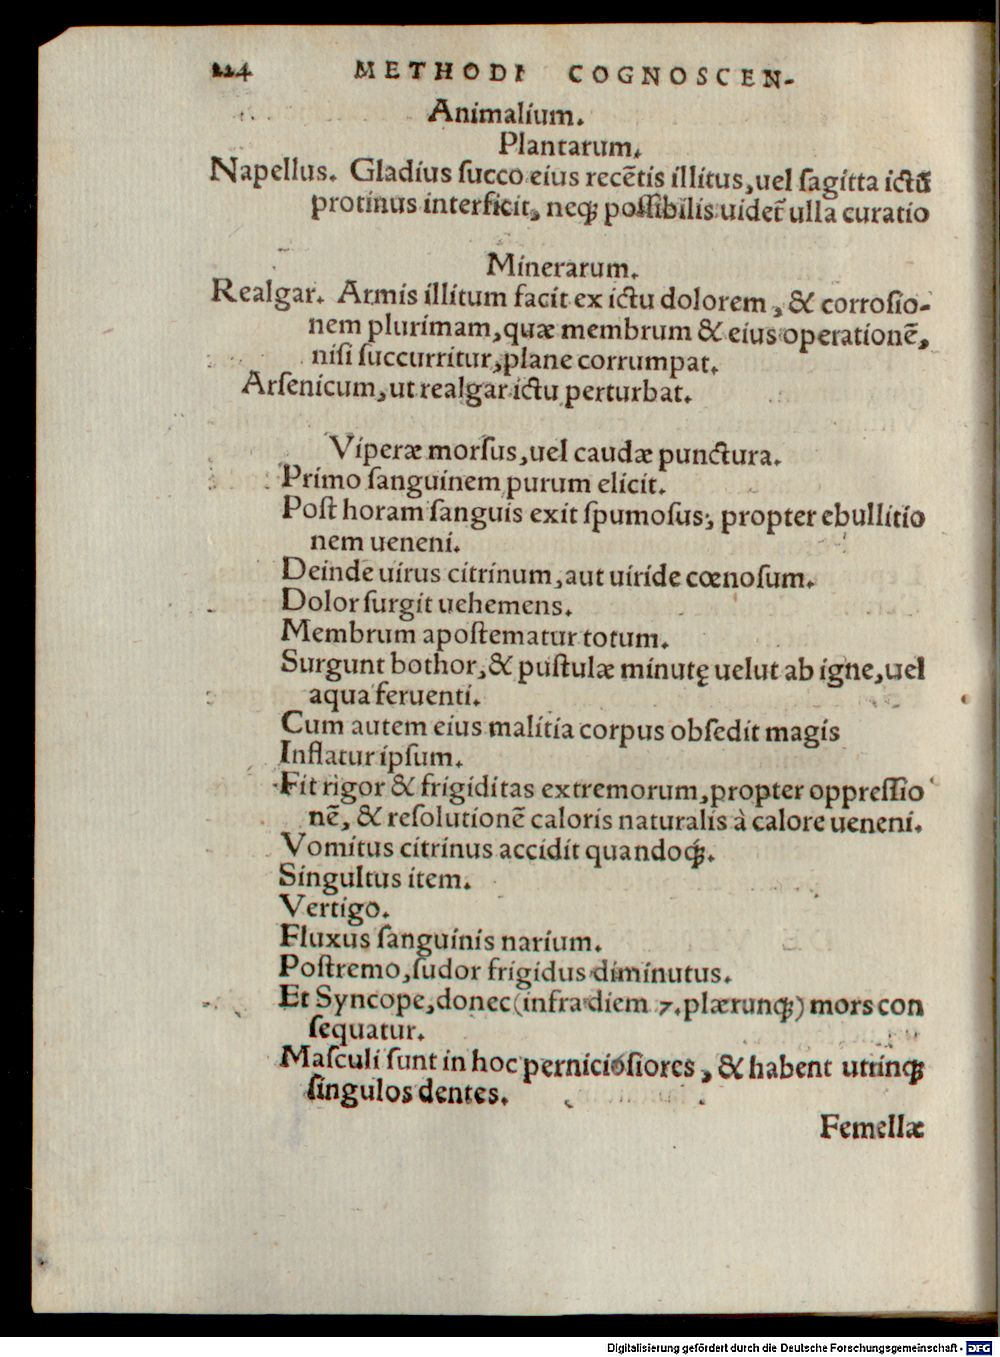 224 METHODI COGNOSCEN-
Animalium.
Plantarum.
Napellus. Gladius ſucco eius recẽtis illitus, uel ſagitta ictũ
protinus interficit, neq; poſſibilis uidet᷑ ulla curatio
Minerarum.
Realgar. Armis illitum facit ex ictu dolorem, & corroſio-
nem plurimam, quæ membrum & eius operationẽ,
niſi ſuccurritur, plane corrumpat.
Arſenicum, ut realgar ictu perturbat.
Viperæ morſus, uel caudæ punctura.
Primo ſanguinem purum elicit.
Poſt horam ſanguis exit ſpumoſus, propter ebullitio
nem ueneni.
Deinde uirus citrinum, aut uiride cœnoſum.
Dolor ſurgit uehemens.
Membrum apoſtematur totum.
Surgunt bothor, & puſtulæ minutę uelut ab igne, uel
aqua feruenti.
Cum autem eius malitia corpus obſedit magis
Inflatur ipſum.
Fit rigor & frigiditas extremorum, propter oppreſſio
nẽ, & reſolutionẽ caloris naturalis à calore ueneni.
Vomitus citrinus accidit quandoq;.
Singultus item.
Vertigo.
Fluxus ſanguinis narium.
Poſtremo, ſudor frigidus diminutus.
Et Syncope, donec (infra diem 7. plærunq;) mors con
ſequatur.
Maſculi ſunt in hoc pernicióſiores, & habent utrinq;
ſingulos dentes.
Femellæ
Digitalisierung gefördert durch die Deutsche Forschungsgemeinschaft - DFG